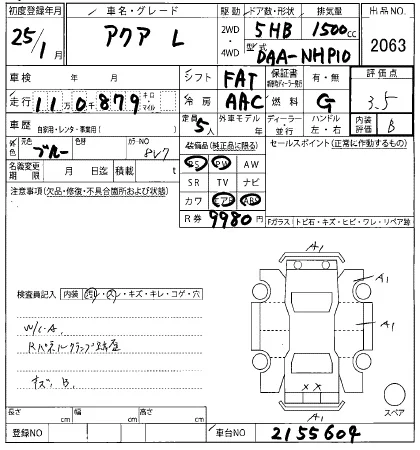 初度登録年月 車名・グレード 駆動 ドア数・形状 排気量 出品NO
25/1月 アクア L 2WD・4WD 5HB 1500cc 2063
型式 DAA-NHP10
車検 年 月 シフト FAT 保証書 有・無 評価点
走行 11万0千879 キロ・マイル 冷房 AAC 燃料 G 3.5
車歴 自家用・レンタ・事業用( ) 定員 5人 外車モデル年 ディーラー・並行 ハンドル 左・右 内装評価 B
外色 元色 ブルー 色替 カラーNO 8V7 装備品(純正品に限る) セールスポイント(正常に作動するもの)
名義変更期限 月 日迄 積載 t PS PW AW
注意事項(欠品・修復・不具合箇所および状態) SR TV ナビ
カワ エアB ABS
R券 9980円 Fガラス トビ石・キズ・ヒビ・ワレ・リペア跡
A1
A1
検査員記入 内装 ヨゴレ・スレ・キズ・キレ・コゲ・穴
A1
W/C A
Rパネルクランプ跡
キズ B
X X
長さ cm 幅 cm 高さ cm
A1
スペア
登録NO 車台NO 2155604